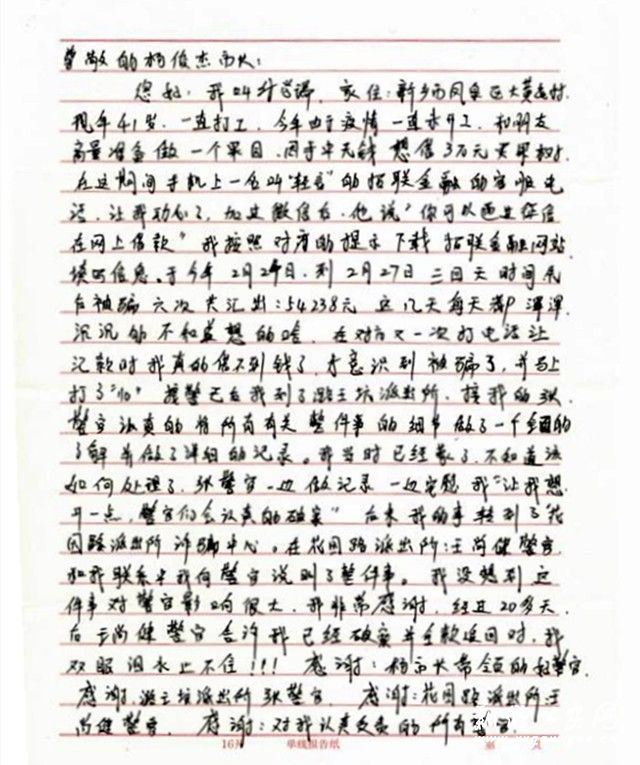 尊敬的杨俊杰市长:
您好:我叫 家住:新乡市凤泉区大黄屯村.
现年41岁.一直打工.今年由于疫情一直未开工.和朋友
商量准备做一个果园.因手中无钱想借3万元买果树.
在这期间手机上一名叫"轻言"的招联金融的客服电
话.让我动心了.加过微信后.他说"你可以通过征信
在网上借款"我按照对方的提示下载招联金融网站
填写信息.于今年2月24日.到2月27日三四天时间先
后被骗六次共汇出:54238元这几天每天满脑浑浑
沉沉的不知道想的啥.在对方又一次打电话让
汇款时我真的借不到钱了.才意识到被骗了,并马上
打了"110"报警已后我到了潞王坟派出所.接我的张
警官认真的将所有有关整件事的细节做了一个全面的
了解并做了详细的记录。我当时已经蒙了.不知道该
如何处理了.张警官一边做记录一边安慰我"让我想
开一点,警官们会认真的破案"后来我的事转到了花
园路派出所诈骗中心。在花园路派出所:王尚健警官.
和我联系中我向警官说明了整件事。我没想到这
件事对警官影响很大.我非常感谢.经过20多天.
后王尚健警官告诉我已经破案并全款追回时,我
双眼泪水止不住!!!感谢:杨市长带领的好警官.
感谢.潞王坟派出所张警官.感谢:花园路派出所:王
尚健警官.感谢:对我认真负责的所有警官.
单线报告纸